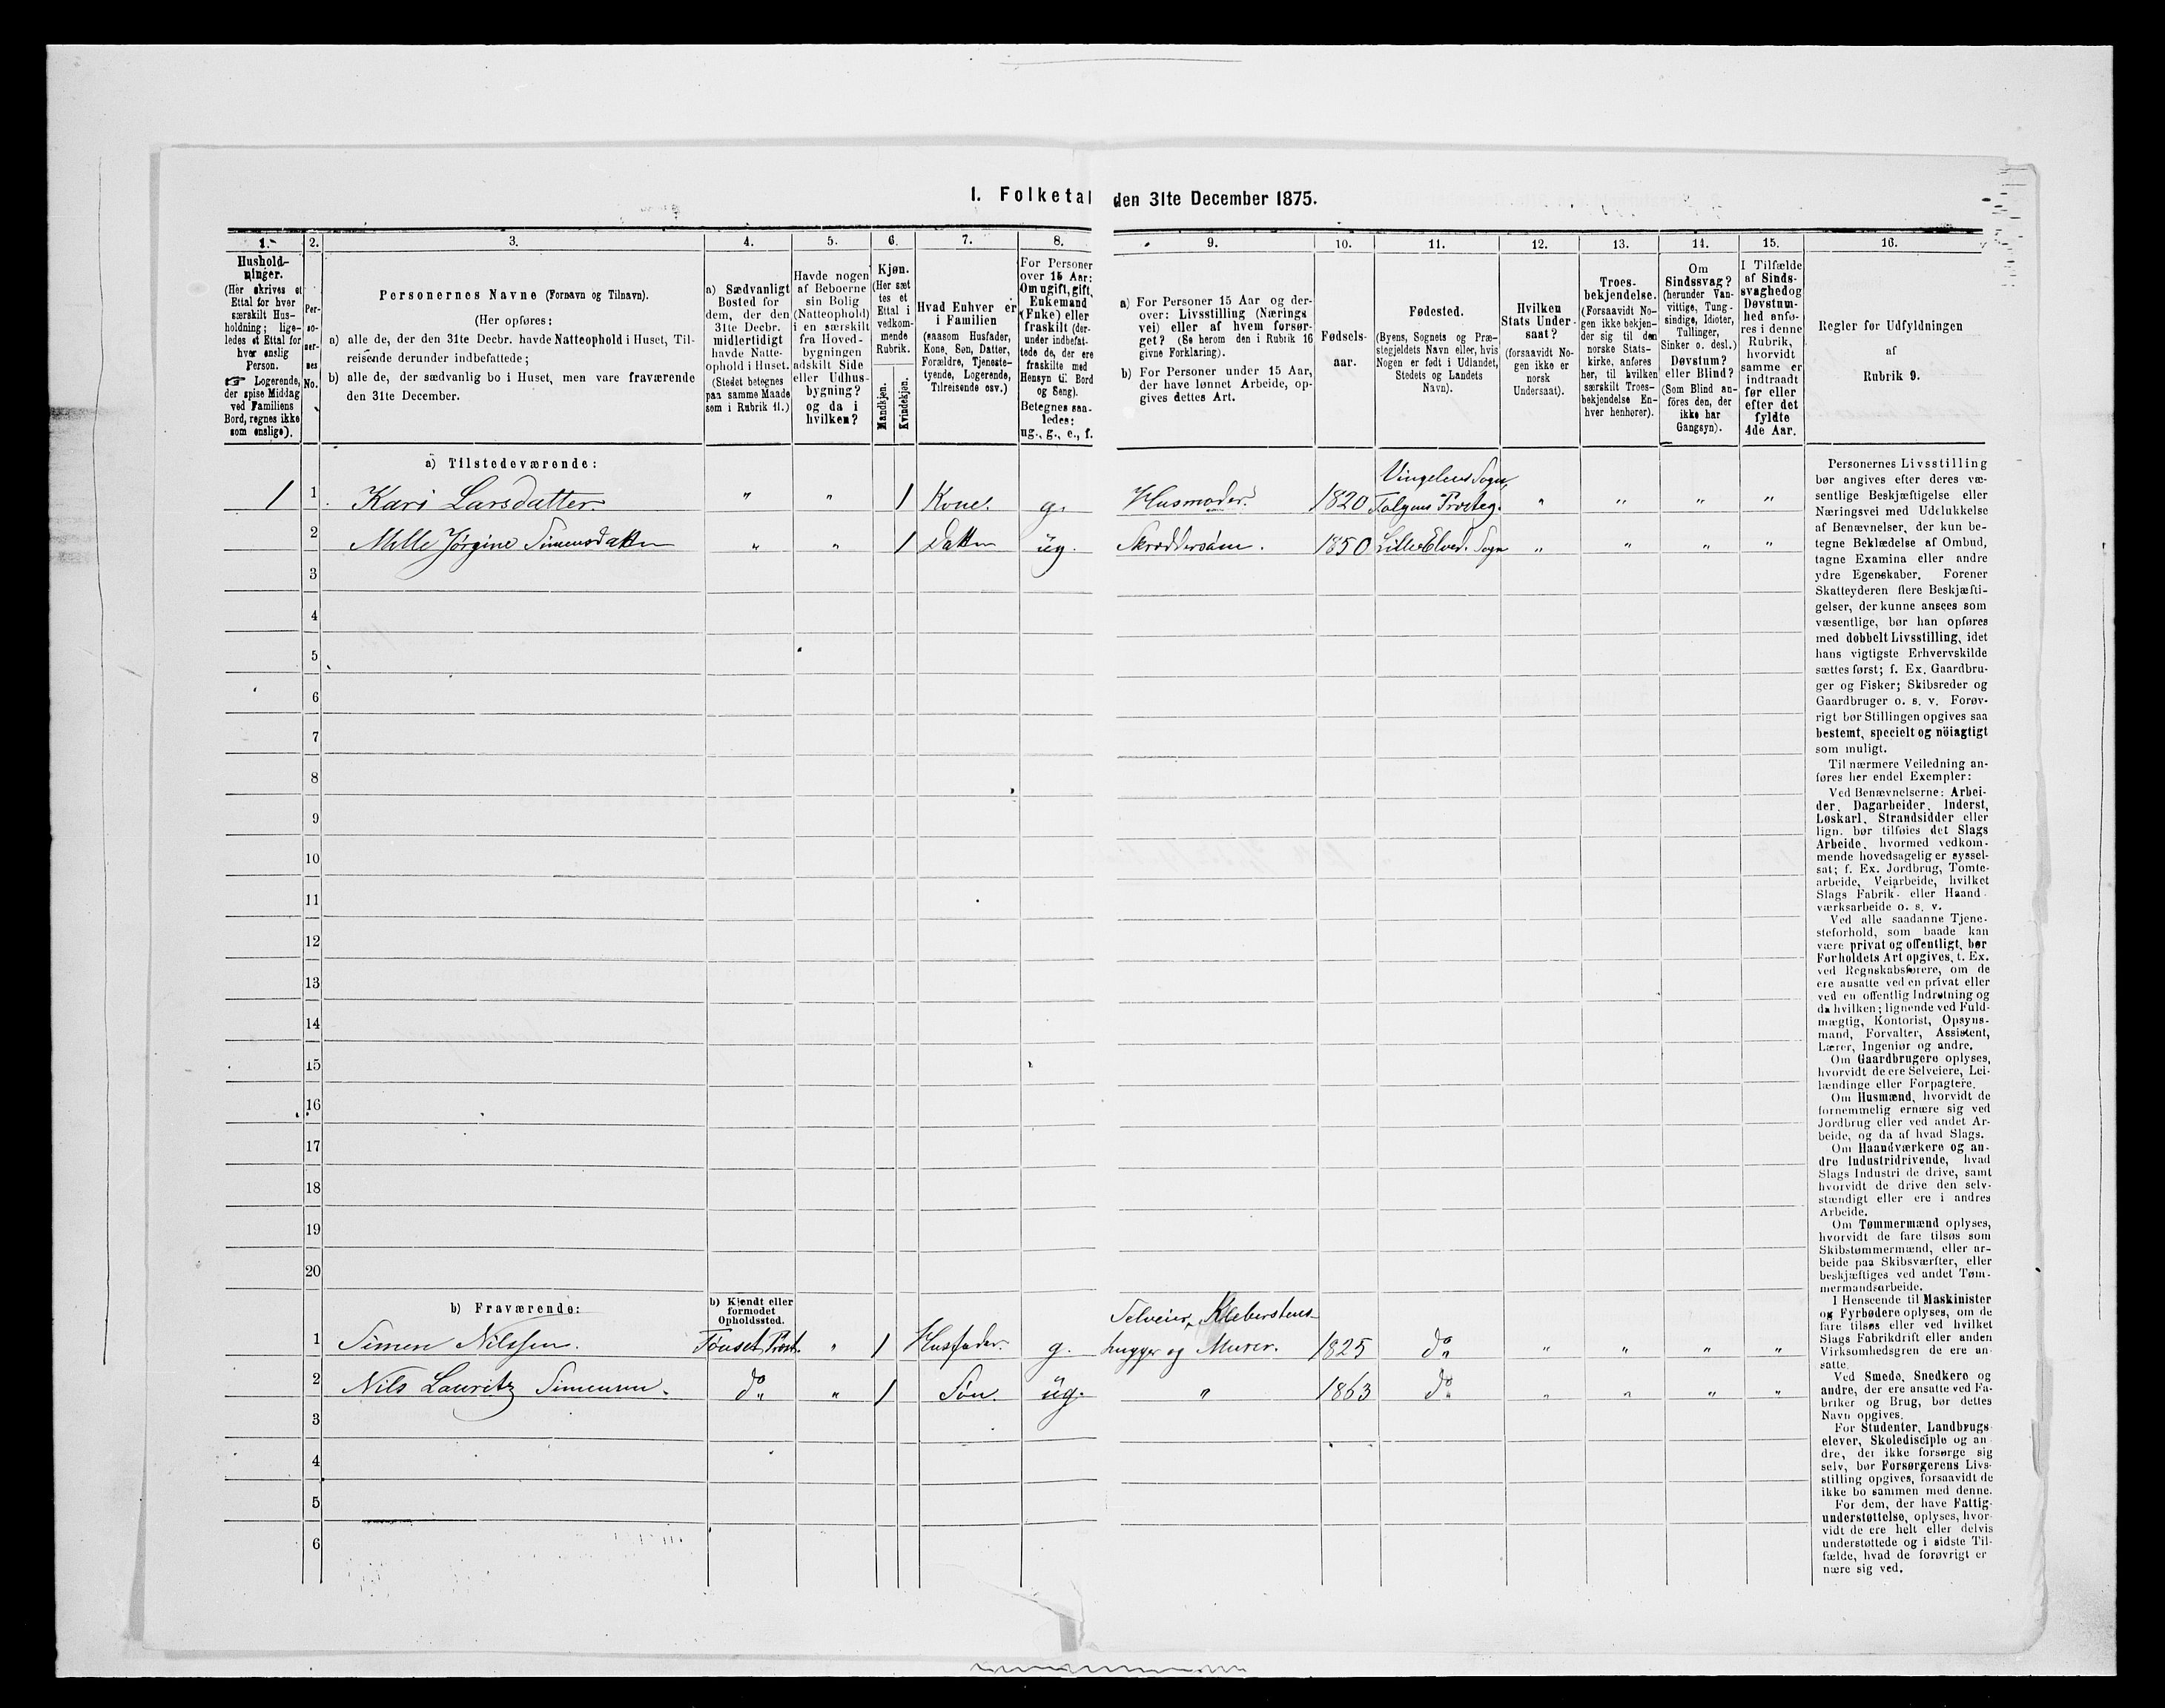 I. Folketal den 31te December 1875.
1. 2. 3. 4. 5. 6. 7. 8. 9. 10. 11. 12. 13. 14. 15. 16.
Hushold-
ninger.
(Her skrives et
Ettal for hver
særskilt Hus-
holdning; lige-
ledes et Ettal for
hver enslig
Person.
☞ Logerende,
der spise Middag
ved Familiens
Bord, regnes ikke
som enslige).
Per-
so-
ner-
nes
No.
Personernes Navne (Fornavn og Tilnavn).
(Her opføres:
a) alle de, der den 31te Decbr. havde Natteophold i Huset, Til-
reisende derunder indbefattede;
b) alle de, der sædvanlig bo i Huset, men vare fraværende
den 31te December.
a) Sædvanligt
Bosted for
dem, der den
31te Decbr.
midlertidigt
havde Natte-
ophold i Huset.
(Stedet betegnes
paa samme Maade
som i Rubrik 11.)
Havde nogen
af Beboerne
sin Bolig
(Natteophold)
i en særskilt
fra Hoved-
bygningen
adskilt Side
eller Udhus-
bygning?
og da i
hvilken?
Kjøn.
(Her sæt
tes et
Ettal i
vedkom-
mende
Rubrik.
Mandkjøn.
Kvindekjøn.
Hvad Enhver er
i Familien
(saasom Husfader,
Kone, Søn, Datter,
Forældre, Tjeneste-
tyende, Logerende,
Tilreisende osv.)
For Personer
over 15 Aar:
Om ugift, gift,
Enkemand
(Enke) eller
fraskilt (der-
under indbefat-
tede de, der ere
fraskilte med
Hensyn til Bord
og Seng).
Betegnes saa-
ledes:
ug., g., e., f.
a) For Personer 15 Aar og der-
over: Livsstilling (Nærings
vei) eller af hvem forsør-
get? (Se herom den i Rubrik 16
givne Forklaring).
b) For Personer under 15 Aar,
der have lønnet Arbeide, op-
gives dettes Art.
Fødsels-
aar.
Fødested.
(Byens, Sognets og Præ-
stegjeldets Navn eller, hvis
Nogen er født i Udlandet,
Stedets og Landets
Navn).
Hvilken
Stats Under-
saat?
(forsaavidt No-
gen ikke er
norsk
Undersaat).
Troes-
bekjendelse.
(Forsaavidt No-
gen ikke bekjen-
der sig til den
norske Stats-
kirke, anføres
her, til hvilken
særskilt Troes-
bekjendelse En-
hver henhører).
Om
Sindssvag?
(herunder Van-
vittige, Tung-
sindige, Idioter,
Tullinger,
Sinker o. desl.)
Døvstum?
eller Blind?
(Som Blind an-
föres den, der
ikke har
Gangsyn).
I Tilfælde
af Sinds-
svaghed og
Døvstum-
hed anfø-
res i denne
Rubrik,
hvorvidt
samme er
indtraadt
før eller
efter det
fyldte
4de Aar.
Regler for Udfyldningen
af
Rubrik 9.
a) Tilstedeværende:
1 1 Kari Larsdatter. " " 1 Kone. g. Husmoder. 1820 Vingelens Sogn,
Tolgens Præsteg. " " " "
2 Mille Jørgine Simensdatter " " 1 Datter ug. Skræddersöm. 1850 Lille Elved. Sogn " " " "
3
4
5
6
7
8
9
10
11
12
13
14
15
16
17
18
19
20
b) Fraværende:
b) Kjendt eller
formodet
Opholdssted.
1 Simen Nilssen. Tönset Præst. " 1 Husfader. g. Selveier, Klebersteens-
hugger og Murer. 1825 do " " " "
2 Nils Lauritz Simensen. do " 1 Søn. ug. " 1863 do " " " "
3
4
5
6
Personernes Livsstilling
bør angives efter deres væ-
sentlige Beskjæftigelse eller
Næringsvei med Udelukkelse
af Benævnelser, der kun be-
tegne Beklædelse af Ombud,
tagne Examina eller andre
ydre Egenskaber. Forener
Skatteyderen flere Beskjæfti-
gelser, der kunne ansees som
væsentlige, bør han opføres
med dobbelt Livsstilling, idet
hans vigtigste Erhvervskilde
sættes først; f. Ex. Gaardbru-
ger og Fisker; Skibsreder og
Gaardbruger o. s. v. Forøv-
rigt bør Stillingen opgives saa
bestemt, specielt og nöiagtigt
som muligt.
Til nærmere Veiledning an-
føres her endel Exempler:
Ved Benævnelserne: Arbei-
der, Dagarbeider, Inderst,
Løskarl, Strandsidder eller
lign. bør tilføies det Slags
Arbeide, hvormed vedkom-
mende hovedsagelig er syssel-
sat; f. Ex. Jordbrug, Tomte-
arbeide, Veiarbeide, hvilket
Slags Fabrik- eller Haand-
værksarbeide o. s. v.
Ved alle saadanne Tjene-
steforhold, som baade kan
være privat og offentligt, bør
Forholdets Art opgives, f. Ex.
ved Regnskabsførere, om de
ere ansatte ved en privat eller
ved en offentlig Indretning og
da hvilken; lignende ved Fuld-
mægtig, Kontorist, Opsyns-
mand, Forvalter, Assistent,
Lærer, Ingeniør og andre.
Om Gaardbrugere oplyses,
hvorvidt de ere Selveiere, Lei-
lændinge eller Forpagtere.
Om Husmænd, hvorvidt de
fornemmelig ernære sig ved
Jordbrug eller ved andet Ar-
beide, og da af hvad Slags.
Om Haandværkere og an-
dre Industridrivende, hvad
Slags Industri de drive, samt
hvorvidt de drive den selv-
stændigt eller ere i andres
Arbeide.
Om Tømmermænd oplyses,
hvorvidt de fare tilsøs som
Skibstømmermænd, eller ar-
beide paa Skibsværfter, eller
beskjæftiges ved andet Tøm-
mermandsarbeide.
I Henseende til Maskinister
og Fyrbødere oplyses, om de
fare tilsøs eller ved hvilket
Slags Fabrikdrift eller anden
Virksomhedsgren de ere an-
satte.
Ved Smede, Snedkere og
andre, der ere ansatte ved Fa-
briker og Brug, bør dettes
Navn opgives.
For Studenter, Landbrugs-
elever, Skoledisciple og an-
dre, der ikke forsørge sig
selv, bør Forsørgerens Livs-
stilling opgives, forsaavidt de
ikke bo sammen med denne.
For dem, der have Fattig-
understøttelse, oplyses, hvor-
vidt de ere helt eller delvis
understøttede og i sidste Til-
fælde, hvad de forøvrigt er
nære sig ved.